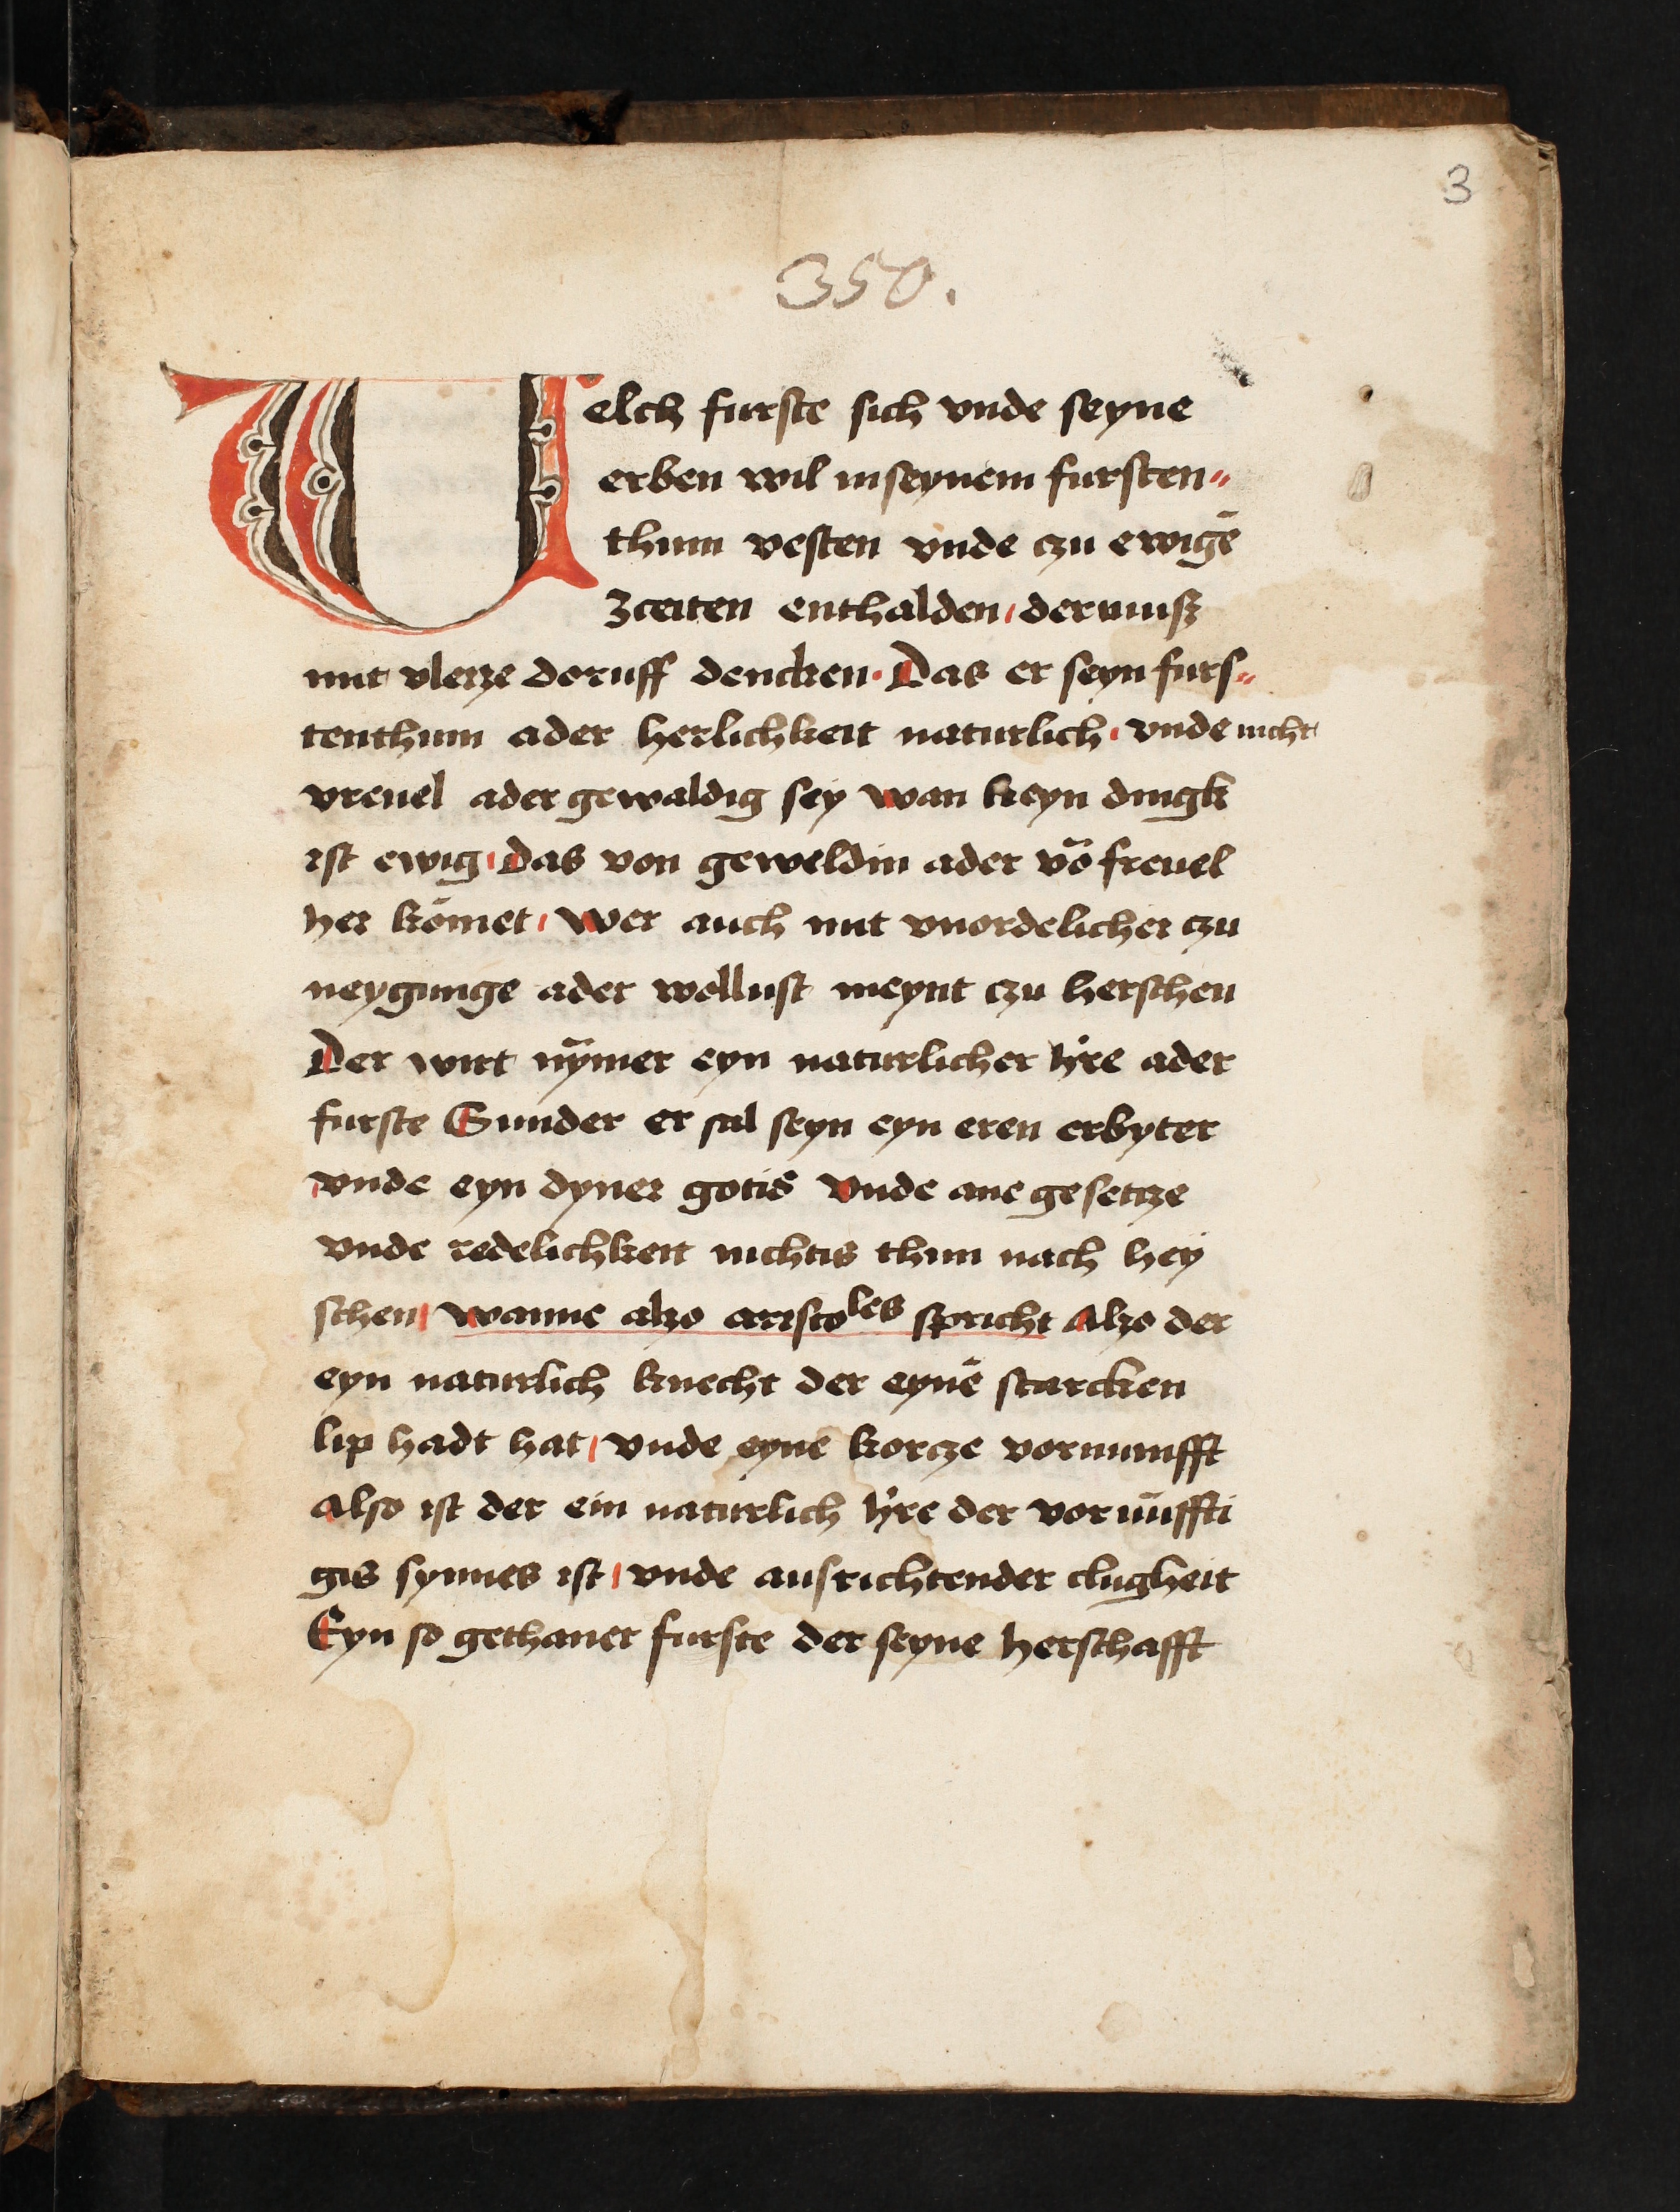 3
350.
Welch furste sich vnde seyne
erben wil in seynem fursten„
thum vesten vnde czu ewigē
Zceiten enthalden, der muß
mit vleize doruff dencken. Das er seyn furs„
tenthum ader herlichkeit naturlich, vnde nicht
vreuel ader gewaldig sey wan keyn dingk
ist ewig, Das von geweldin ader vō freuel
her kōmet, Wer auch mit vnordelicher czu
neygunge ader wollust meynt czu herschen
Der wirt nȳmer eyn naturlicher h're ader
furste Sunder er sal seyn eyn eren erbyter
vnde eyn dyner gotis Vnde ane gesetcze
vnde redelichkeit nichtis thun nach hey
schen, Wanne alzo aristoles spricht Alzo der
eyn naturlich knecht der eynē starcken
lip hadt hat, vnde eyne korcze vornunfft
Also ist der ein naturlich h're der vornūffti
gis synnes ist, vnde ausrichtender clugheit
Eyn so gethaner furste der seyne herschafft